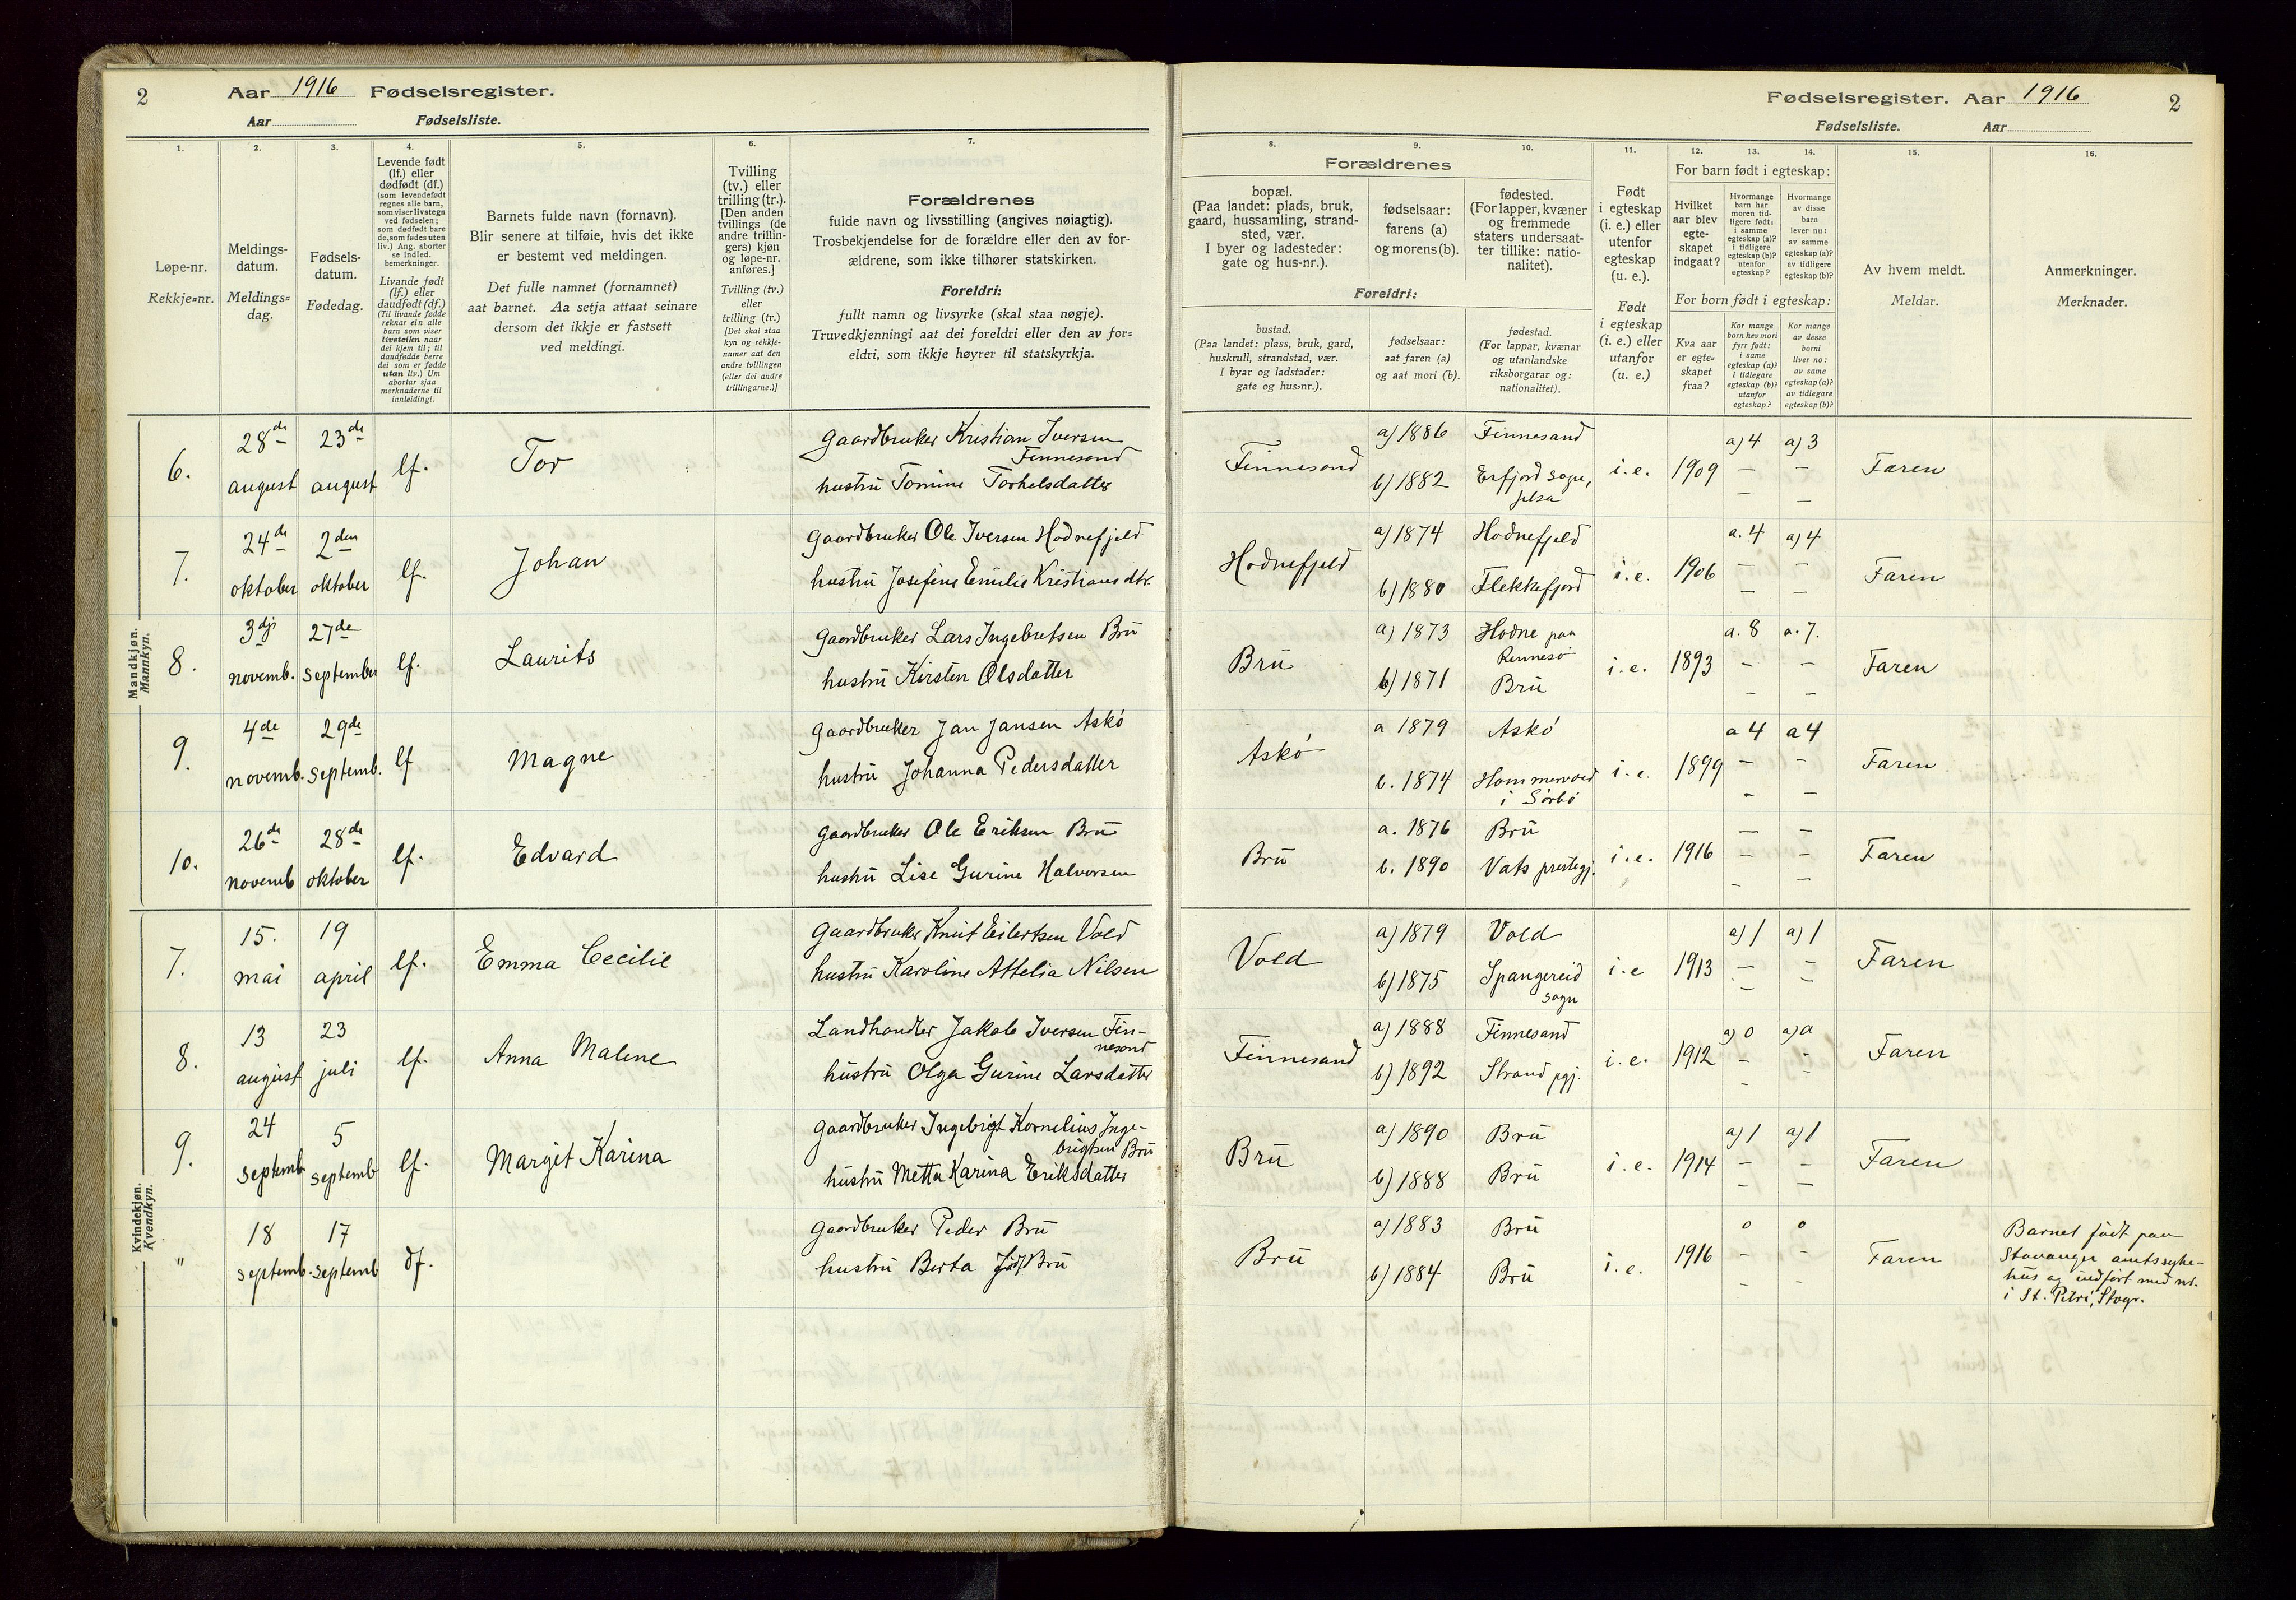 2 Aar 1916 Fødselsregister.
Aar Fødselsliste.
Fødselsregister. Aar 1916 2
Fødselsliste. Aar
1. 2. 3. 4. 5. 6. 7.
Løpe-nr.
Rekkje-nr.
Meldings-
datum.
Meldings-
dag.
Fødsels-
datum.
Fødedag.
Levende født
(lf.) eller
dødfødt (df.)
(som levendefødt
regnes alle barn,
som viser livstegn
ved fødselen;
som dødfødt bare
de, som fødes uten
liv.) Ang. aborter
se indled.
bemerkninger.
Livande født
(lf.) eller
daudfødt (df.)
(Til livande fødde
reknar ein alle
barn som viser
livsteikn naar
dei kjem til; til
daudfødde berre
dei som er fødde
utan liv.) Um
abortar sjaa
merknaderne til
innleidingi.
Barnets fulde navn (fornavn).
Blir senere at tilføie, hvis det ikke
er bestemt ved meldingen.
Det fulle namnet (fornamnet)
aat barnet. Aa setja attaat seinare
dersom det ikkje er fastsett
ved meldingi.
Tvilling
(tv.) eller
trilling (tr.).
[Den anden
tvillings (de
andre trillin-
gers) kjøn
og løpe-nr.
anføres.]
Tvilling (tv.)
eller
trilling (tr.)
[Det skal staa
kyn og rekkje-
numer aat den
andre tvillingen
(eller dei andre
trillingarne.)]
Forældrenes
fulde navn og livsstilling (angives nøiagtig).
Trosbekjendelse for de forældre eller den av for-
ældrene, som ikke tilhører statskirken.
Foreldri:
fullt namn og livsyrke (skal staa nøgje).
Truvedkjenningi aat dei foreldri eller den av for-
eldri, som ikkje høyrer til statskyrkja.
8. 9. 10. 11. 12. 13. 14. 15. 16.
Forældrenes
bopæl.
(Paa landet: plads, bruk,
gaard, hussamling, strand-
sted, vær.
I byer og ladesteder:
gate og hus-nr.).
fødselsaar:
farens (a)
og morens (b).
fødested.
(For lapper, kvæner
og fremmede
staters undersaat-
ter tillike: natio-
nalitet).
Foreldri:
bustad.
(Paa landet: plass, bruk, gard,
huskrull, strandstad, vær.
I byar og ladstader:
gate og hus-nr.).
fødselsaar:
aat faren (a)
og aat mori (b).
fødestad.
(For lappar, kvænar
og utanlandske
riksborgarar og:
nationalitet).
Født
i egteskap
(i. e.) eller
utenfor
egteskap
(u. e.).
Født
i egteskap
(i. e.) eller
utanfor
(u. e.)
For barn født i egteskap:
Hvilket
aar blev
egte-
skapet
indgaat?
Hvormange
barn har
moren tid-
ligere født:
i samme
egteskap (a)?
i tidligere
egteskap (b)?
utenfor
egteskap?
Hvormange
av disse
barn
lever nu:
av samme
egteskap (a)?
av tidligere
egteskap (b)?
For born født i egteskap:
Kva aar
er egte-
skapet
fraa?
Kor mange
born hev mori
fyrr født:
i same
egteskap (a)?
i tidlegare
egteskap (b)?
utanfor
egteskap?
Kor mange
av desse
borni
liver no:
av same
egteskap (a)?
av tidlegare
egteskap (b)?
Av hvem meldt.
Meldar.
Anmerkninger.
Merknader.
Mandkjøn.
Mannkyn.
6. 28de august 23de august lf. Tor
Gaardbruker Kristian Iversen
Finnesand
hustrü Tomine Torkelsdatter
Finnesand a) 1886 Finnesand
b) 1882 Erfjord sogn,
Jelsa
i. e. 1909 a) 4 – – a) 3 – – Faren
7. 24de oktober 2den oktober lf. Johan
Gaardbruker Ole Iversen Hodnefjeld
hustrü Josefine Emilie Kristiansdtr.
Hodnefjeld a) 1874 Hodnefjeld
b) 1880 Flekkefjord
i. e. 1906 a. 4 – – a) 4 – – Faren
8. 3dje novemb. 27de september lf. Laurits
Gaardbruker Lars Ingebretsen Brü
hustrü Kirsten Olsdatter
Brü a) 1873 Hodne paa
Rennesö
b) 1871 Brü
i. e. 1893 a. 8 – – a. 7. – – Faren
9. 4de novemb. 29de septemb. lf Magne
Gaardbruker Jan Jansen Askö
hustrü Johanna Pedersdatter
Askö a 1879 Askö
b. 1874 Hammervold
i Sörbö
i. e. 1899 a 4 – – a 4 – – Faren
10. 26de novemb 28de oktober lf. Edvard
Gaardbruker Ole Eriksen Brü
hustrü Lise Gurine Halvorsen
Brü a. 1876 Brü
b. 1890 Vats prestegj.
i. e. 1916 – – – – – Faren
Kvindekjøn.
Kvendkyn.
7. 15. mai 19 april lf. Emma Cecilie
Gaardbruker Knut Eilertsen Vold
hustrü Karoline Attelia Nilsen
Vold a) 1879 Vold
b) 1875 Spangereid
sogn
i. e 1913 a) 1 – – a) 1 – – Faren
8. 13 august 23 juli lf. Anna Malene
Landhandler Jakob Iversen Fin-
nesand
hüstrü Olga Gurine Larsdatter
Finnesand a) 1888 Finnesand
b) 1892 Strand pgj.
i. e. 1912 a) 0 – – a) 0 – – Faren
9. 24 septemb 5 septemb lf. Margit Karina
Gaardbruker Ingebrigt Kornelius Inge-
brigtsen Brü
hustrü Metta Karina Eriksdatter
Brü a) 1890 Brü
b) 1888 Brü
i. e. 1914 a) 1 – – a) 1 – – Faren
" 18 septemb. 17 septemb df.
Gaardbruker Peder Brü
hustrü Berta född Brü
Brü a) 1883 Brü
b) 1884 Brü
i. e. 1916 0 – – 0 – – Faren
Barnet födt paa
Stavanger amtssyke-
hüs og indfört med nr.
i St. Petri, Stvgr.